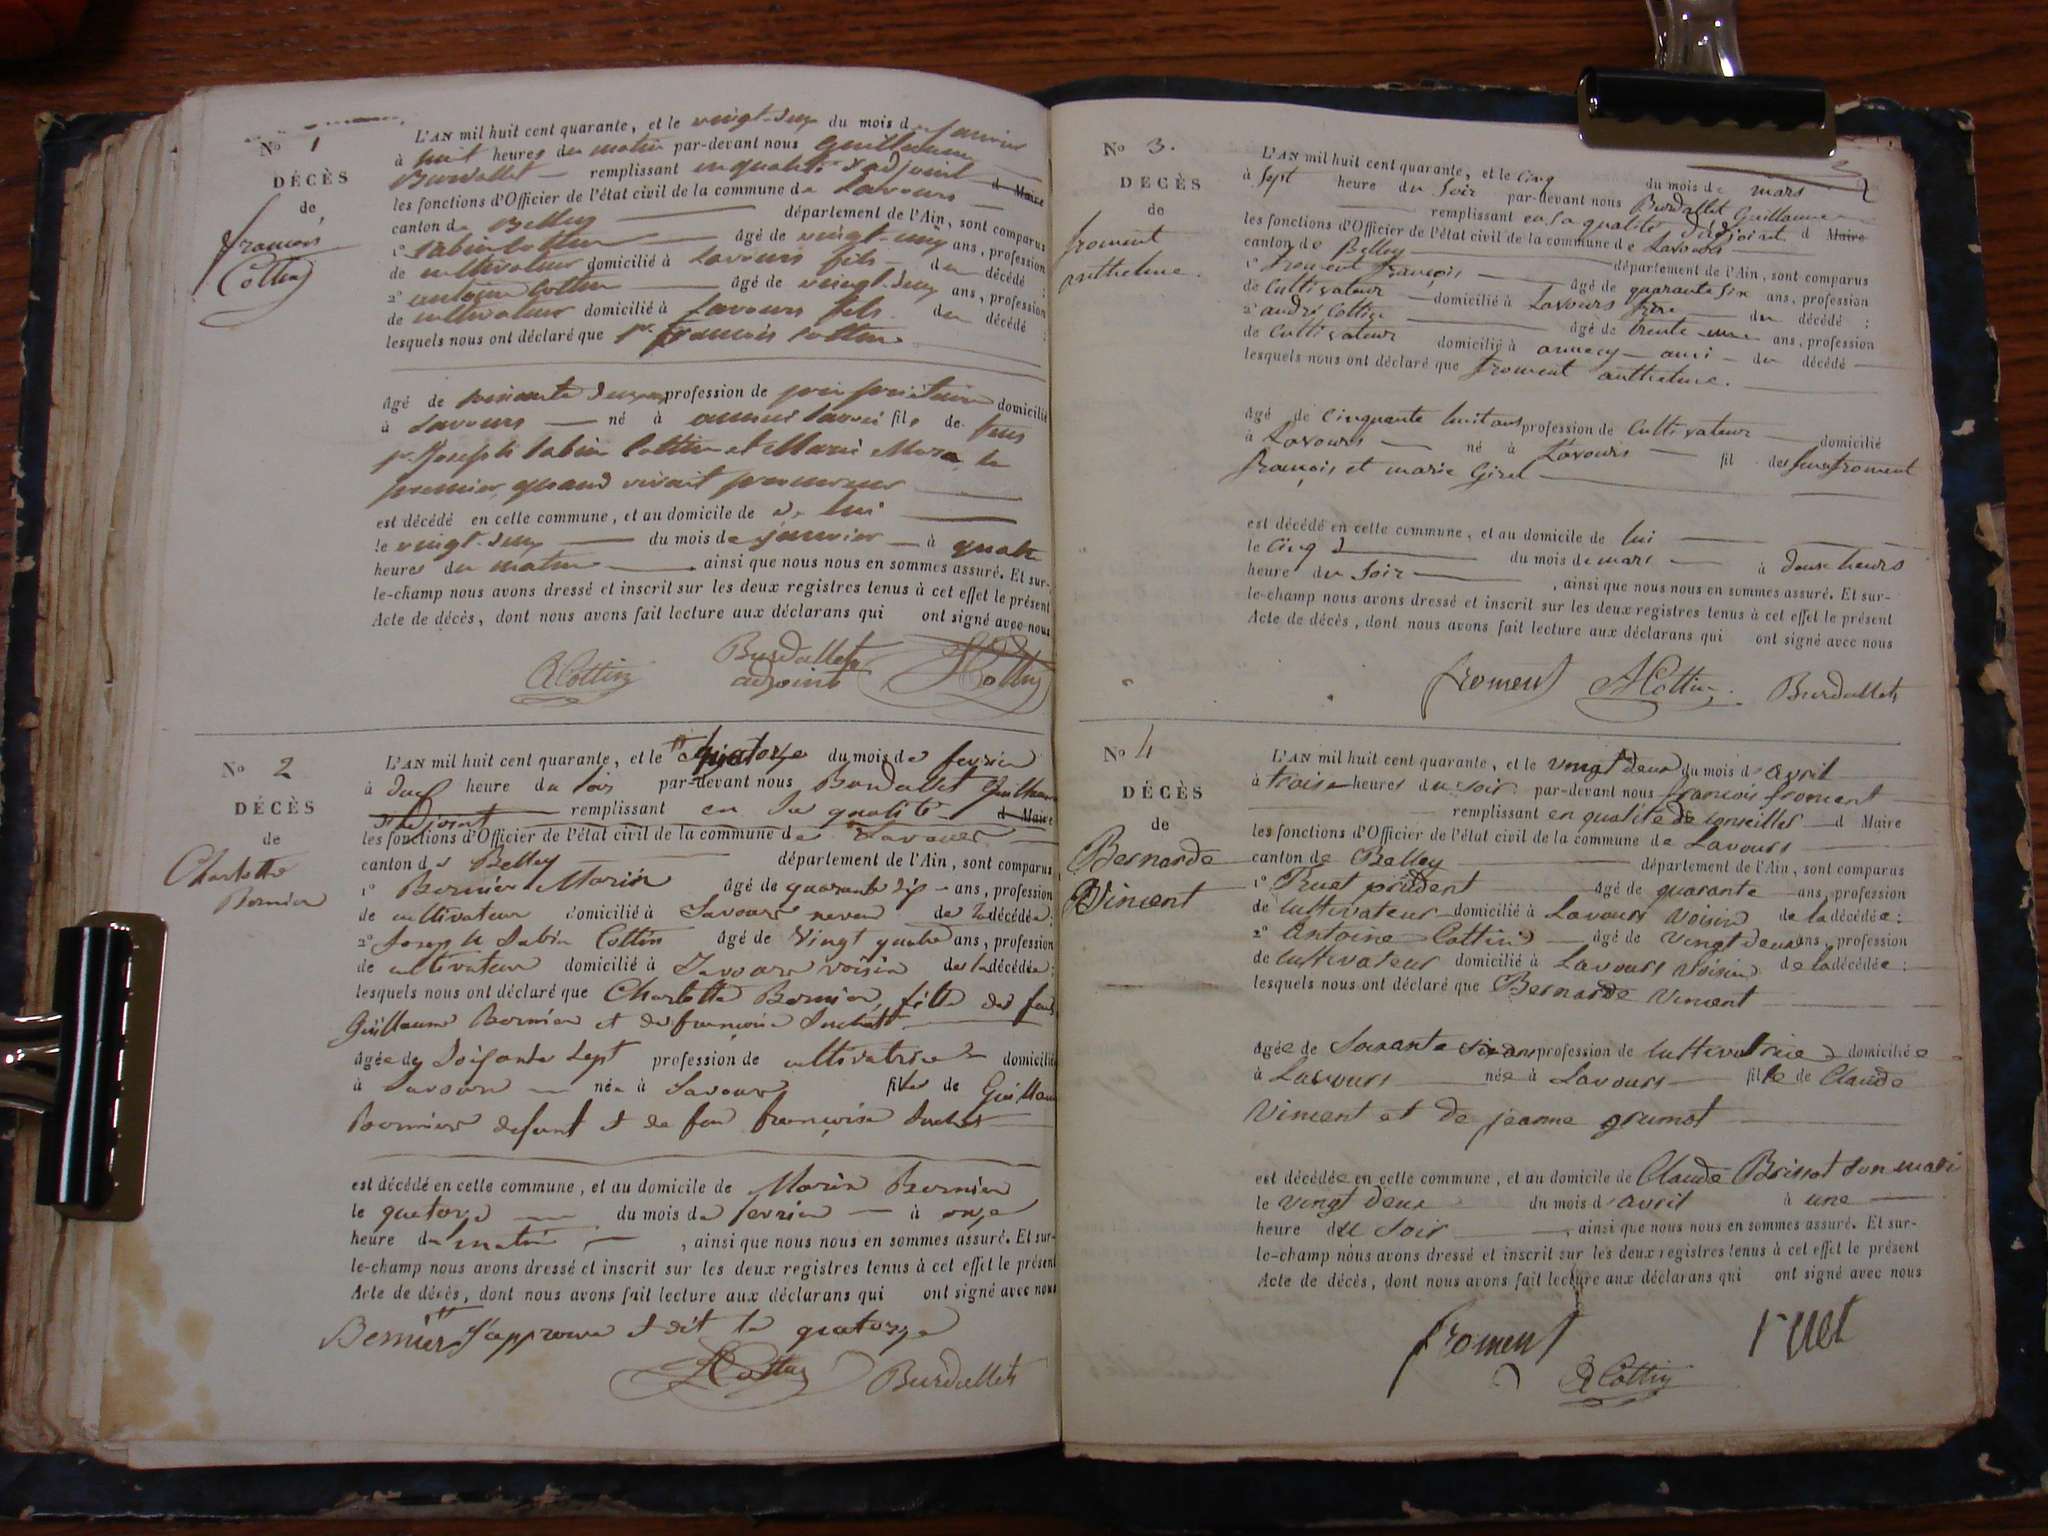 No 1
DÉCÈS
de
françois
Cottin
L'AN mil huit cent quarante, et le vingt-deux du mois de janvier
à huit heures du matin par-devant nous Guillaume
Burdallet remplissant en qualité d'adjoint d Maire
les fonctions d'Officier de l'état civil de la commune de Lavours
canton de Belley département de l'Ain, sont comparus
1° Sabin Cottin âgé de vingt-cinq ans, profession
de cultivateur domicilié à Lavours fils du décédé ;
2° antoine Cottin âgé de vingt-deux ans, profession
de cultivateur domicilié à Lavours fils du décédé ;
lesquels nous ont déclaré que françois Cottin
âgé de deux profession de propriétaire domicilié
à Lavours né à fils de feus
Joseph Sabin Cottin et Marie le
premier quand vivait procureur
est décédé en celle commune, et au domicile de de lui
le vingt-deux du mois de janvier à quatre
heures du matin ainsi que nous nous en sommes assuré. Et sur-
le-champ nous avons dressé et inscrit sur les deux registres tenus à cet effet le présent
Acte de décès, dont nous avons fait lecture aux déclarans qui ont signé avec nous
A Cottin Burdallet Cottin
adjoint
No 2
DÉCÈS
de
Charlotte
Bernier
L'AN mil huit cent quarante, et le quatorze du mois de fevrier
à heure du soir par-devant nous Burdallet Guillaume
adjoint remplissant en sa qualité d Maire
les fonctions d'Officier de l'état civil de la commune de Lavours
canton de Belley département de l'Ain, sont comparus
1° Bernier Marin âgé de quarante dix ans, profession
de cultivateur domicilié à Lavours neveu de la décédée ;
2° Joseph Sabin Cottin âgé de Vingt quatre ans, profession
de cultivateur domicilié à Lavours voisin de la décédée ;
lesquels nous ont déclaré que Charlotte Bernier, fille de feu
Guillaume Bernier et de françoise Suchet
âgée de soixante sept profession de cultivatrice domicilié
à Lavours née à Lavours fille de Guillaume
Bernier defunt et de feu françoise Suchet
est décédé en celle commune, et au domicile de Marin Bernier
le quatorze du mois de fevrier à onze
heure du matin , ainsi que nous nous en sommes assuré. Et sur-
le-champ nous avons dressé et inscrit sur les deux registres tenus à cet effet le présent
Acte de décès, dont nous avons fait lecture aux déclarans qui ont signé avec nous
Bernier J'approuve et dit le quatorze
Cottin Burdallet
No 3.
DÉCÈS
de
froment
anthelme.
L'AN mil huit cent quarante, et le cinq du mois de mars
à Sept heure du Soir par-devant nous Burdallet Guillaume
remplissant en sa qualité d'adjoint d Maire
les fonctions d'Officier de l'état civil de la commune de Lavours
canton de Belley département de l'Ain, sont comparus
1° froment françois âgé de quarante six ans, profession
de Cultivateur domicilié à Lavours frère du décédé ;
2° andré Cottin âgé de trente ans, profession
de Cultivateur domicilié à annecy ami du décédé
lesquels nous ont déclaré que froment anthelme.
âgé de cinquante huit ans profession de Cultivateur domicilié
à Lavours né à Lavours fil de feu froment
françois et marie Girel
est décédé en celle commune, et au domicile de lui
le cinq du mois de mars à heurs
heure du Soir , ainsi que nous nous en sommes assuré. Et sur-
le-champ nous avons dressé et inscrit sur les deux registres tenus à cet effet le présent
Acte de décès, dont nous avons fait lecture aux déclarans qui ont signé avec nous
froment A Cottin Burdallet
No 4
DÉCÈS
de
Bernarde
Vincent
L'AN mil huit cent quarante, et le vingt deux du mois d'avril
à trois heures du soir par-devant nous françois froment
remplissant en qualité de Conseiller d Maire
les fonctions d'Officier de l'état civil de la commune de Lavours
canton de Belley département de l'Ain, sont comparus
1° Ruet prudent âgé de quarante ans, profession
de Cultivateur domicilié à Lavours Voisin de la décédée ;
2° Antoine Cottin âgé de vingt deux ans, profession
de Cultivateur domicilié à Lavours Voisin de la décédée ;
lesquels nous ont déclaré que Bernarde Vincent
âgée de Soixante six ans profession de Cultivatrice domiciliée
à Lavours née à Lavours fille de Claude
Vincent et de jeanne grumot
est décédée en celle commune, et au domicile de Claude Brissot son mari
le vingt deux du mois d'avril à une
heure du soir , ainsi que nous nous en sommes assuré. Et sur-
le-champ nous avons dressé et inscrit sur les deux registres tenus à cet effet le présent
Acte de décès, dont nous avons fait lecture aux déclarans qui ont signé avec nous
froment ruet
A Cottin